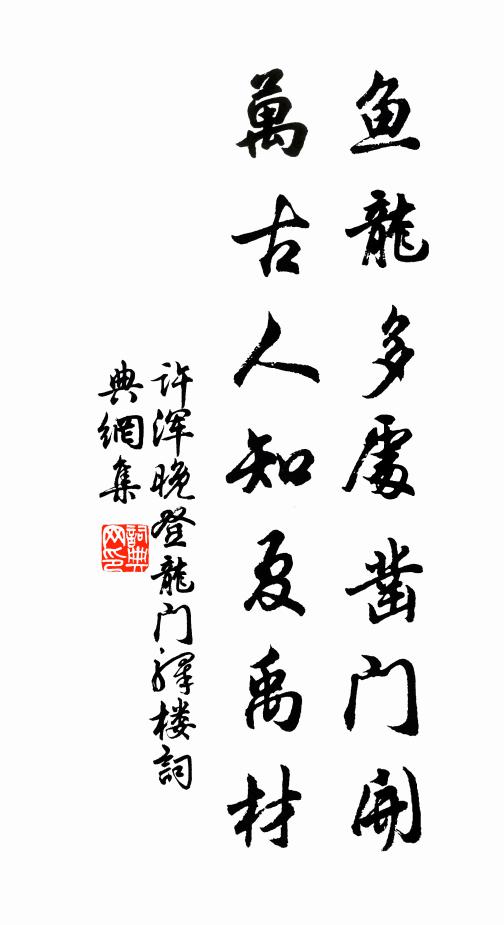 鱼龍多處凿门開
萬古人知夏禹材
许浑晚登龍门驛楼詞
典網集
詞典
网印